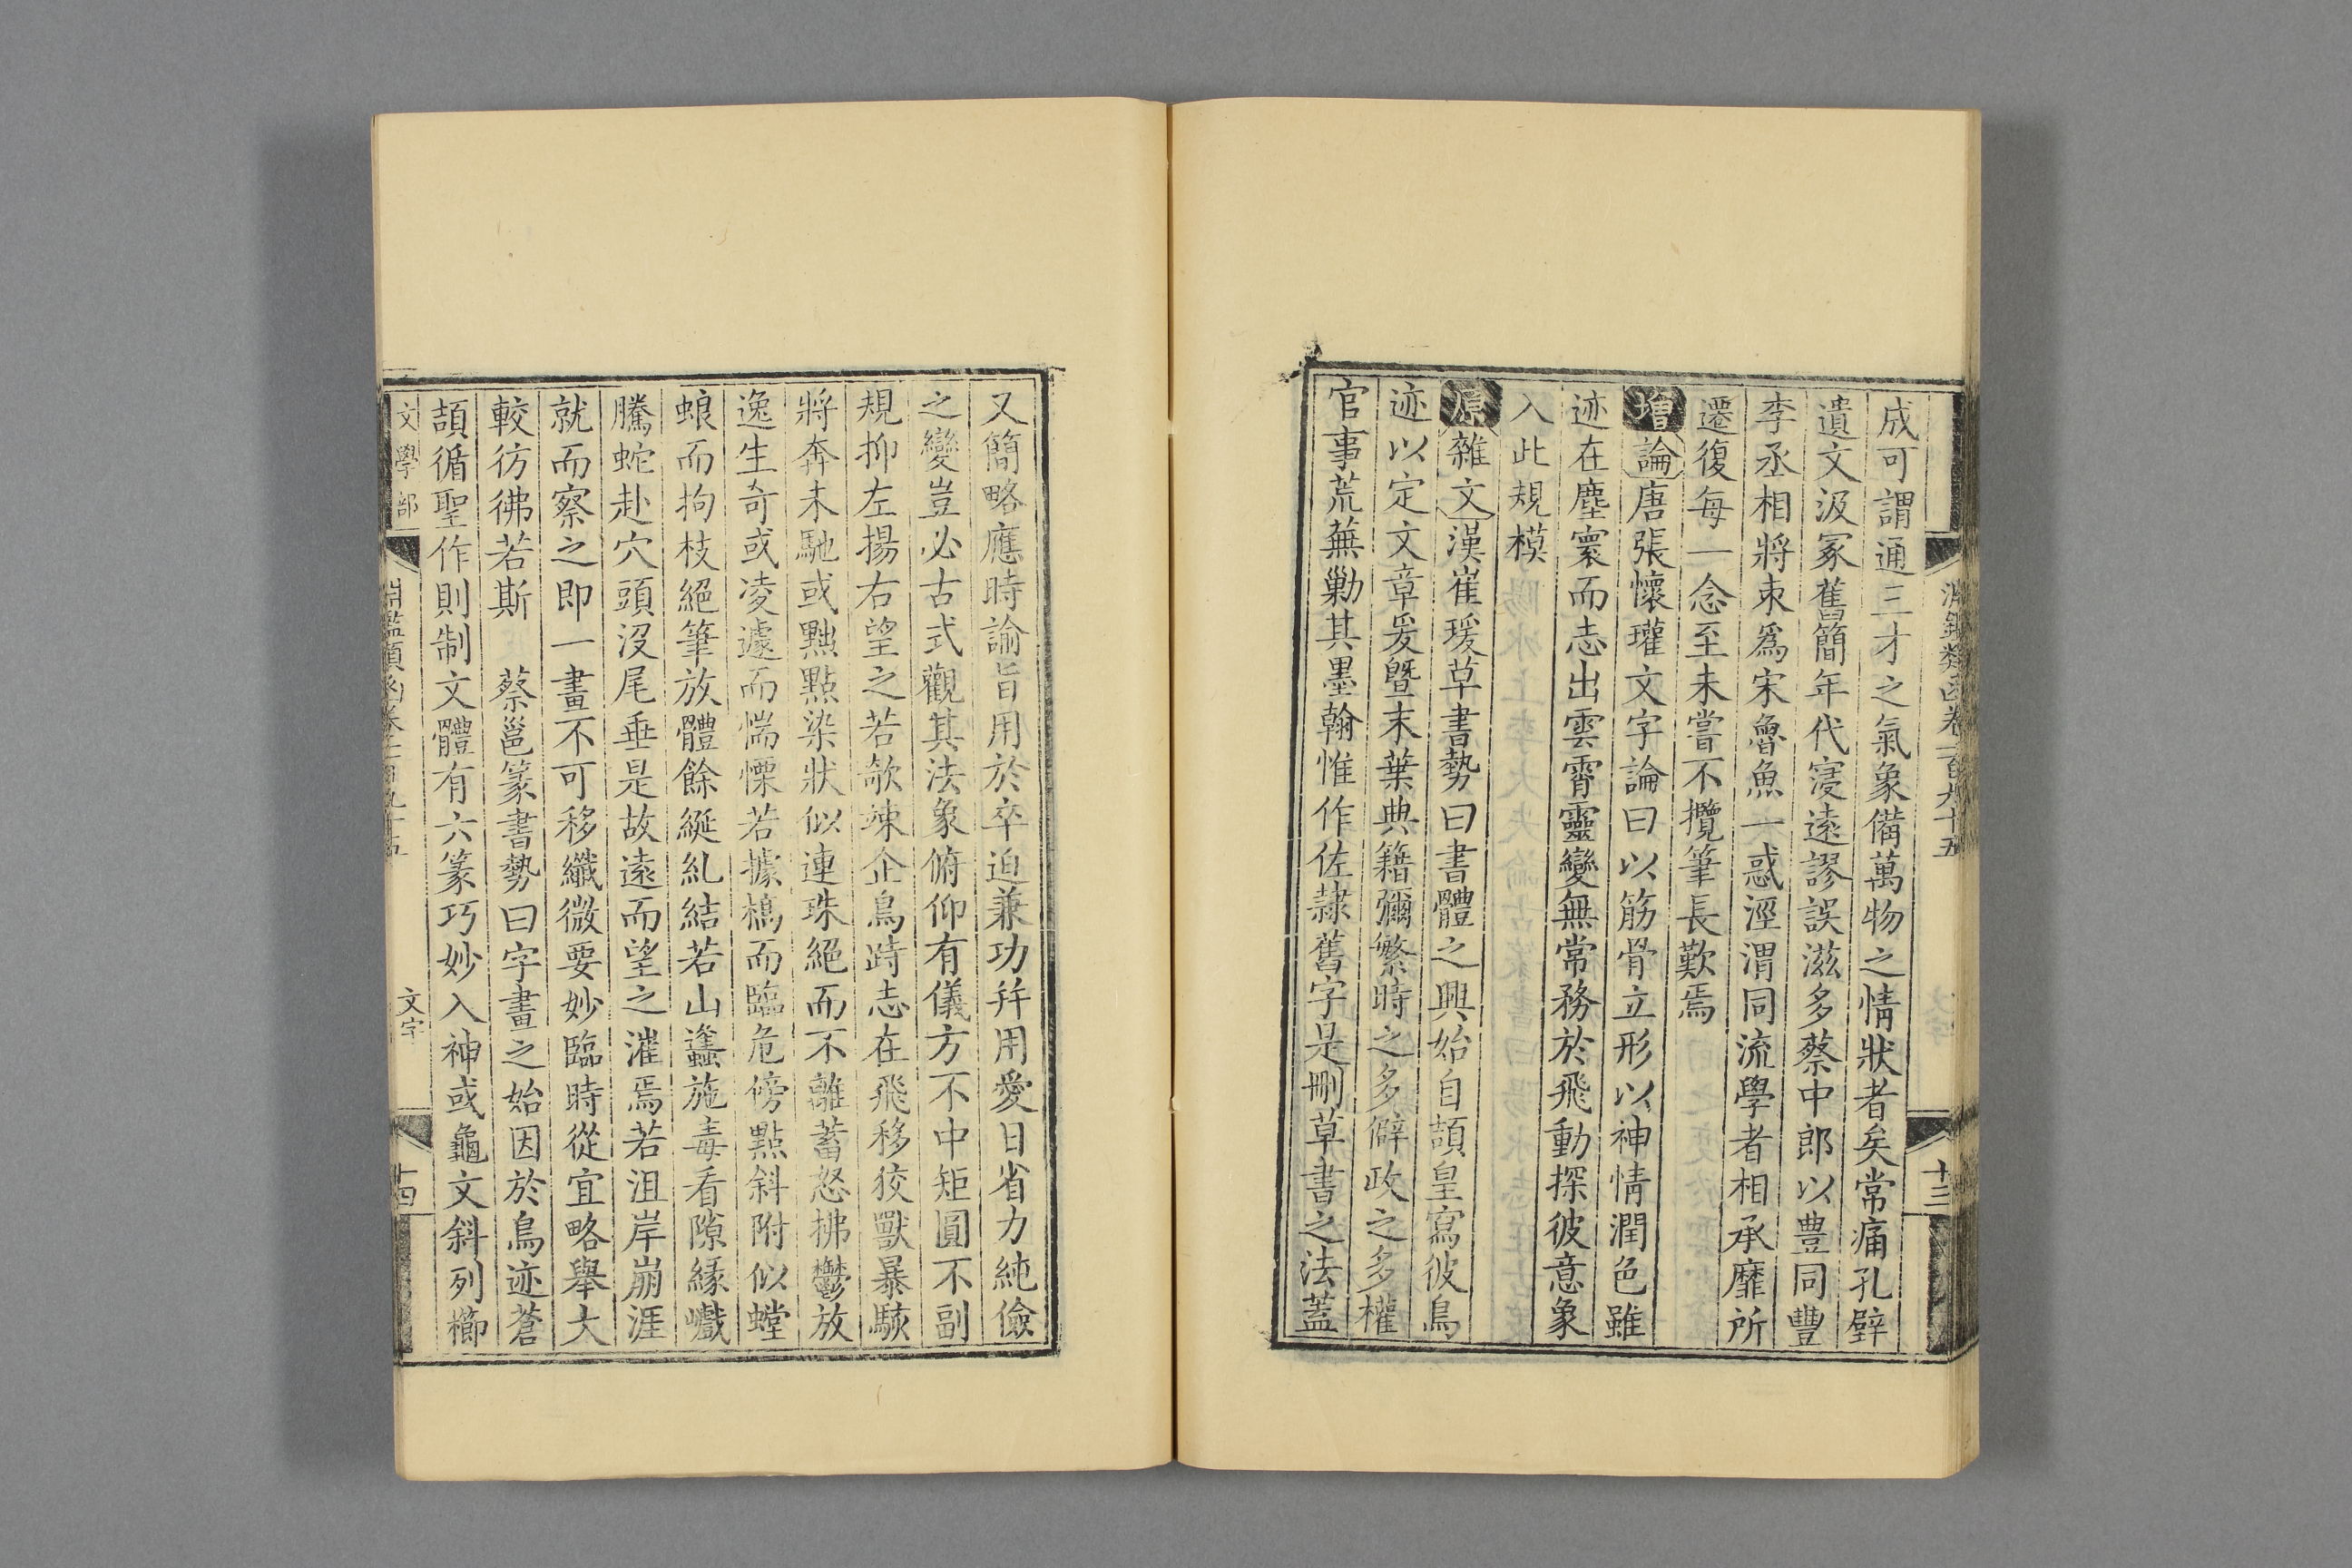 淵鑑類函卷一百九十五
十三
成可謂通三才之氣象備萬物之情狀者矣常痛孔壁
遺文汲冢舊簡年代寖遠謬誤滋多蔡中郎以豊同豐
李丞相將朿爲宋魯魚一惑涇渭同流學者相承靡所
遷復每一念至未嘗不攬筆長歎焉
增論唐張懷瓘文字論曰以筋骨立形以神情潤色雖
迹在塵寰而志出雲霄靈變無常務於飛動探彼意象
入此規模
原雜文漢崔瑗草書勢曰書體之興始自頡皇寫彼鳥
迹以定文章爰暨末葉典籍彌繁時之多僻政之多權
官事荒蕪勦其墨翰惟作佐隷舊字是刪草書之法蓋
又簡略應時諭旨用於卒迫兼功并用愛日省力純儉
之變豈必古式觀其法象俯仰有儀方不中矩圓不副
規抑左揚右望之若欹竦企鳥跱志在飛移狡獸暴駭
將奔未馳或黝點染狀似連珠絕而不離蓄怒拂鬱放
逸生奇或凌遽而惴慄若據槁而臨危傍點斜附似螳
蜋而拘枝絕筆放體餘綖糺結若山蠭施毒看隙緣巇
騰蛇赴穴頭沒尾垂是故遠而望之漼焉若沮岸崩涯
就而察之即一畫不可移纖微要妙臨時從宜略舉大
較彷彿若斯　蔡邕篆書勢曰字畫之始因於鳥迹蒼
頡循聖作則制文體有六篆巧妙入神或龜文斜列櫛
文學部
淵鑑類函卷一百九十五
文字
十四